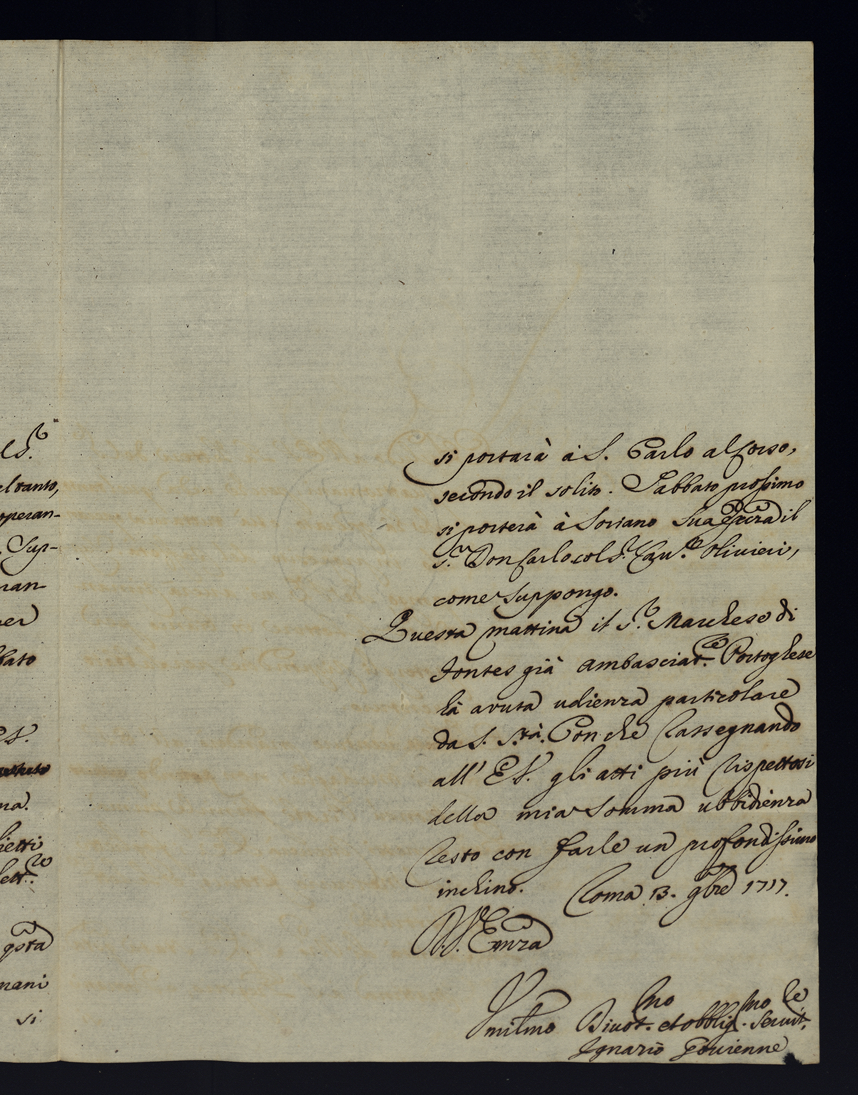 elS.r
el santo,
operan-
Sup-
nan-
per
bbato
ES.
ma.
lietti
lett.re
qsta
mani
si
si portarà à S. Carlo al Corso,
secondo il solito. Sabbato prossimo
si porterà à Soriano Sua Ecc.za il
S.r Don Carlo col S.r Cav.re Olivieri,
come suppongo.
Questa mattina il S.r Marchese di
Fontes già Ambasciat.re Portoghese
hà avuta udienza particolare
da S. S.tà. Con che rassegnando
all' ES. gli atti più rispettosi
della mia somma ubbidienza
resto con farle un profondissimo
inchino. Roma 13. 9bre 1717.
D. V. Emza
Umilmo Divot.mo et obblig.mo Servit.re
Ignazio